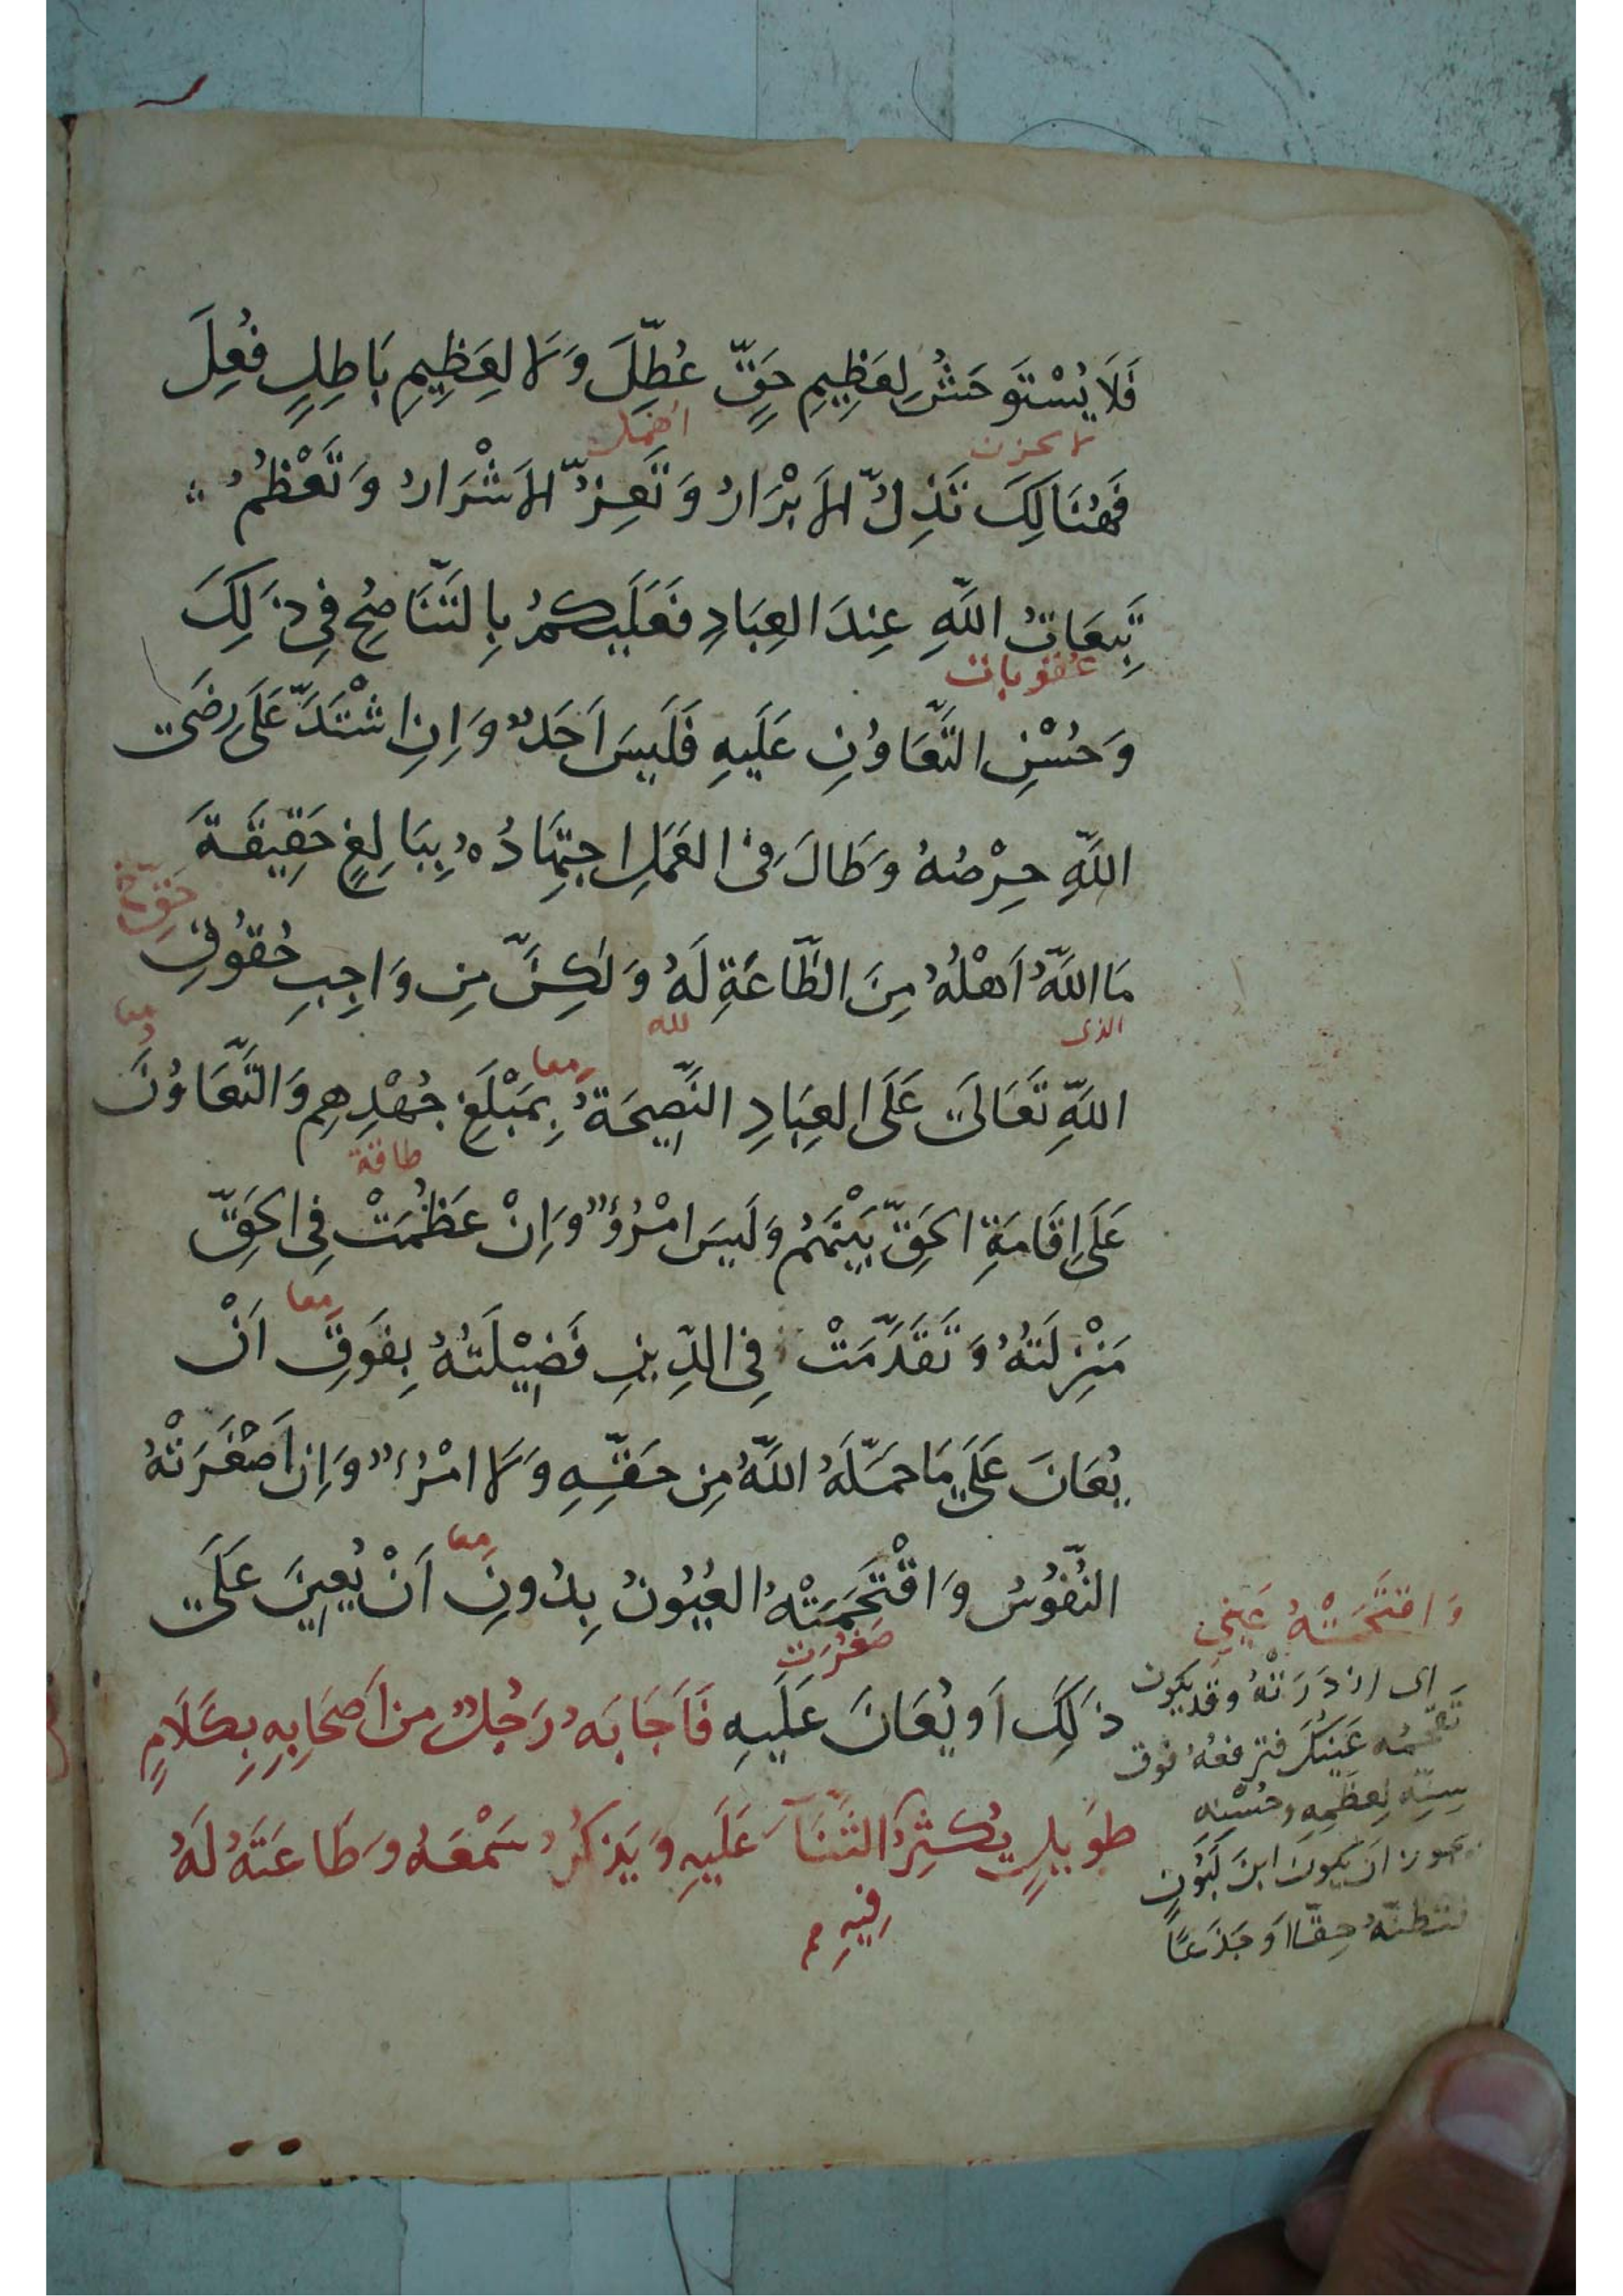 فَلَا يُسْتَوحَشُ لِعَظِيمِ حَقٍّ عُطِّلَ وَلَا لِعَظِيمِ بَاطِلٍ فُعِلَ
لا يحزن
فَهُنَالِكَ تَذِلُّ الأَبْرَارُ وَتَعِزُّ الأَشْرَارُ وَتَعْظُمُ
تَبِعَاتُ اللَّهِ عِندَ العِبَادِ فَعَلَيكُم بِالتَّنَاصُحِ فِي ذَلِكَ
عقوبات
وَحُسْنِ التَّعَاوُنِ عَلَيهِ فَلَيسَ اَحَدٌ وَاِنِ اشْتَدَّ عَلَى رِضَى
اللَّهِ حِرْصُهُ وَطَالَ فِى العَمَلِ اجتِهَادُهُ بِبَالِغٍ حَقِيقَةَ
حَقِّ خ
مَا اللَّهُ اَهْلُهُ مِنَ الطَّاعَةِ لَهُ وَلَكِنَّ مِن وَاجِبِ حُقُوقِ
الذى لله معا
اللَّهِ تَعَالَى عَلَى العِبَادِ النَّصِيحَةُ بِمَبْلَغِ جُهْدِهِم وَالتَّعَاوُنَ
معا
طاقة
عَلَى اِقَامَةِ الحَقِّ بَيْنَهُم وَلَيسَ امْرُؤٌ وَاِنْ عَظُمَتْ فِى الحَقِّ
مَنْزِلَتُهُ وَتَقَدَّمَتْ فِى الدِّينِ فَضِيْلَتُهُ بِفَوقِ اَنْ
معا
يُعَانَ عَلَى مَا حَمَّلَهُ اللَّهُ مِن حَقِّهِ وَلَا امْرُءٌ وَاِن اَصْغَرَتْهُ
النُّفُوسُ وَاقْتَحَمَتْهُ العُيُونُ بِدُونِ اَنْ يُعِينَ عَلَى
معا
صغرت
ذَلِكَ اَو يُعَانَ عَلَيهِ فَاَجَابَهُ رَجُلٌ من اَصحَابِهِ بِكَلَامٍ
طَوِيلٍ يُكثِرُ الثَّنَآءَ عَلَيهِ وَيَذكُرُ سَمْعَهُ وَطَاعَتَهُ لَهُ
فِيهِ م
وَاقتَحَمَتْهُ عَينِي
اى ازدَرَتْهُ وقد يكون
تقحمه عَينُكَ فترفعهُ فوق
سِنِّهِ لِعِظَمِهِ وحُسْنِه
ان يكون ابنَ لَبُونٍ
فتظنّهُ حِقًّا اَو جَذَعًا